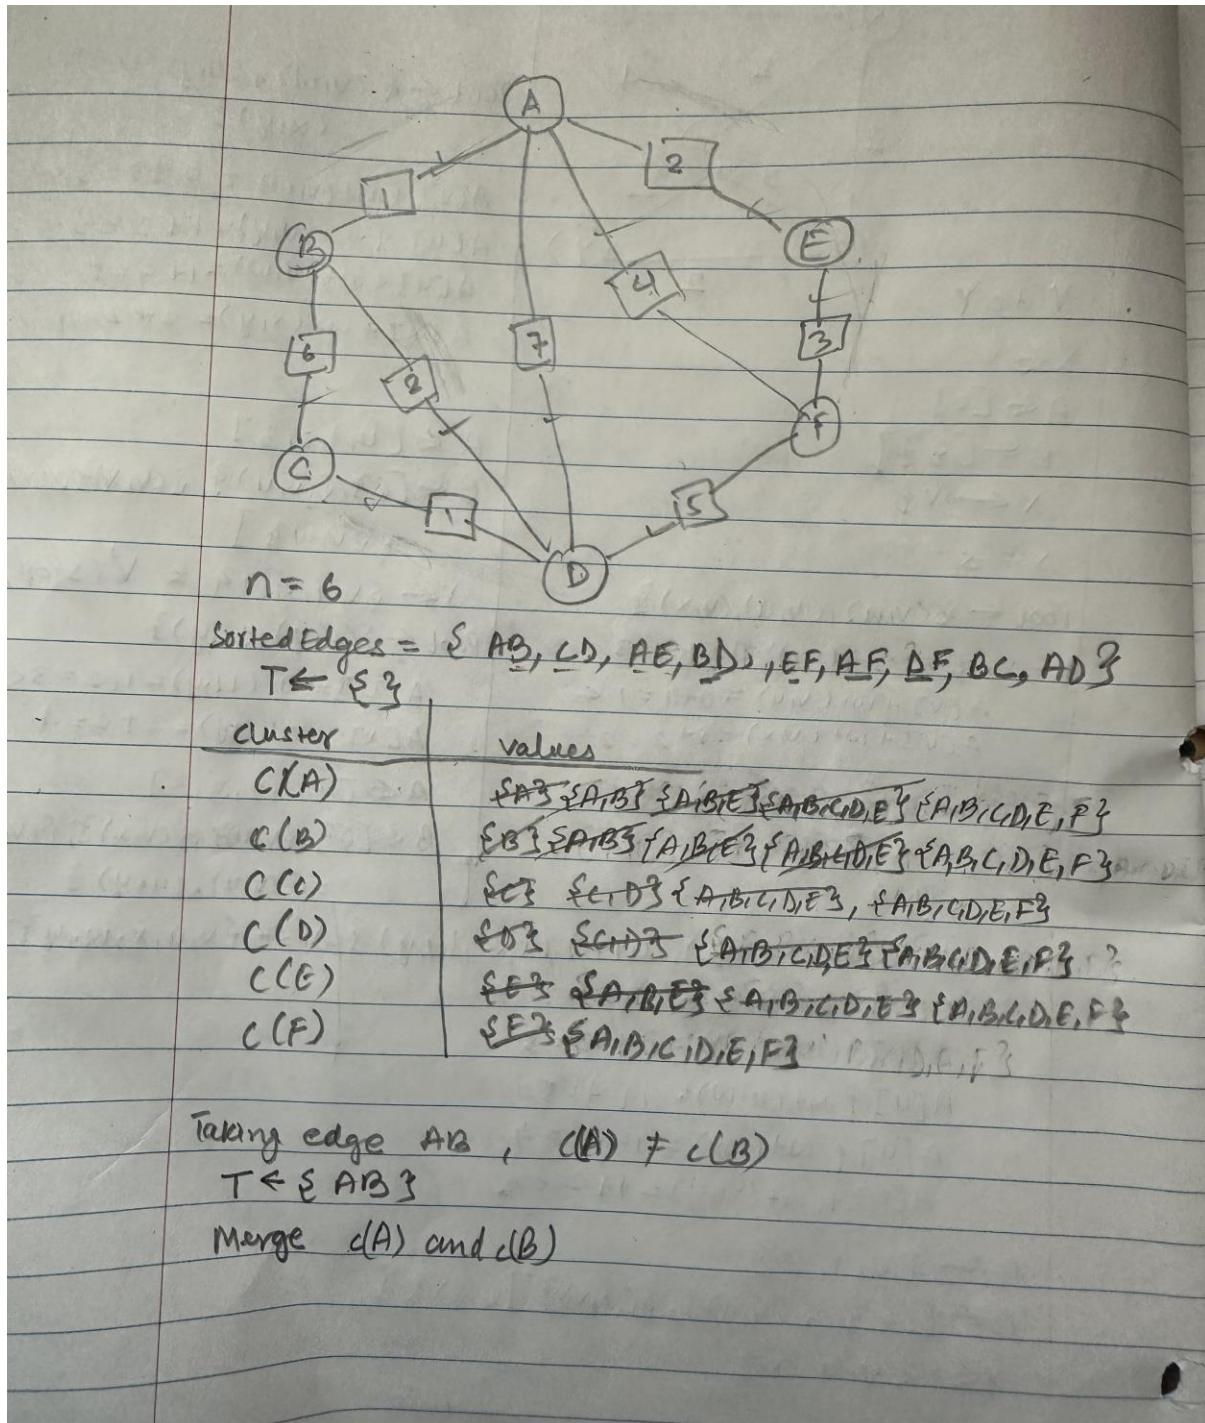 A
1
2
B
E
4
6
2
7
3
C
F
1
5
D
n = 6
Sorted Edges = { AB, CD, AE, BD, , EF, AF, DF, BC, AD }
T ← { }
cluster values
C(A) {A} {A,B} {A,B,E} {A,B,C,D,E} {A,B,C,D,E,F}
C(B) {B} {A,B} {A,B,E} {A,B,C,D,E} {A,B,C,D,E,F}
C(C) {C} {C,D} {A,B,C,D,E}, {A,B,C,D,E,F}
C(D) {D} {C,D} {A,B,C,D,E} {A,B,C,D,E,F}
C(E) {E} {A,B,E} {A,B,C,D,E} {A,B,C,D,E,F}
C(F) {F} {A,B,C,D,E,F}
Taking edge AB, C(A) ≠ C(B)
T ← { AB }
Merge C(A) and C(B)